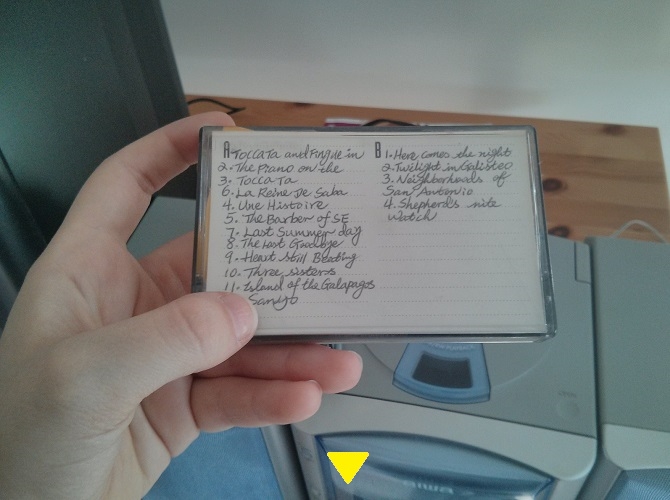 A
Toccata and Fugue in
2. The Piano on the
3. Toccata
6. La Reine de Saba
4. Une Histoire
5. The Barber of SE
7. Last Summer day
8. The Last Goodbye
9. Heart Still Beating
10. Three sisters
11. Island of the Galapagos
Sanyo
B
1. Here comes the night
2. Twilight in Galisteo
3. Neighborhoods of
San Antonio
4. Shepherds nite
Watch
aiwa